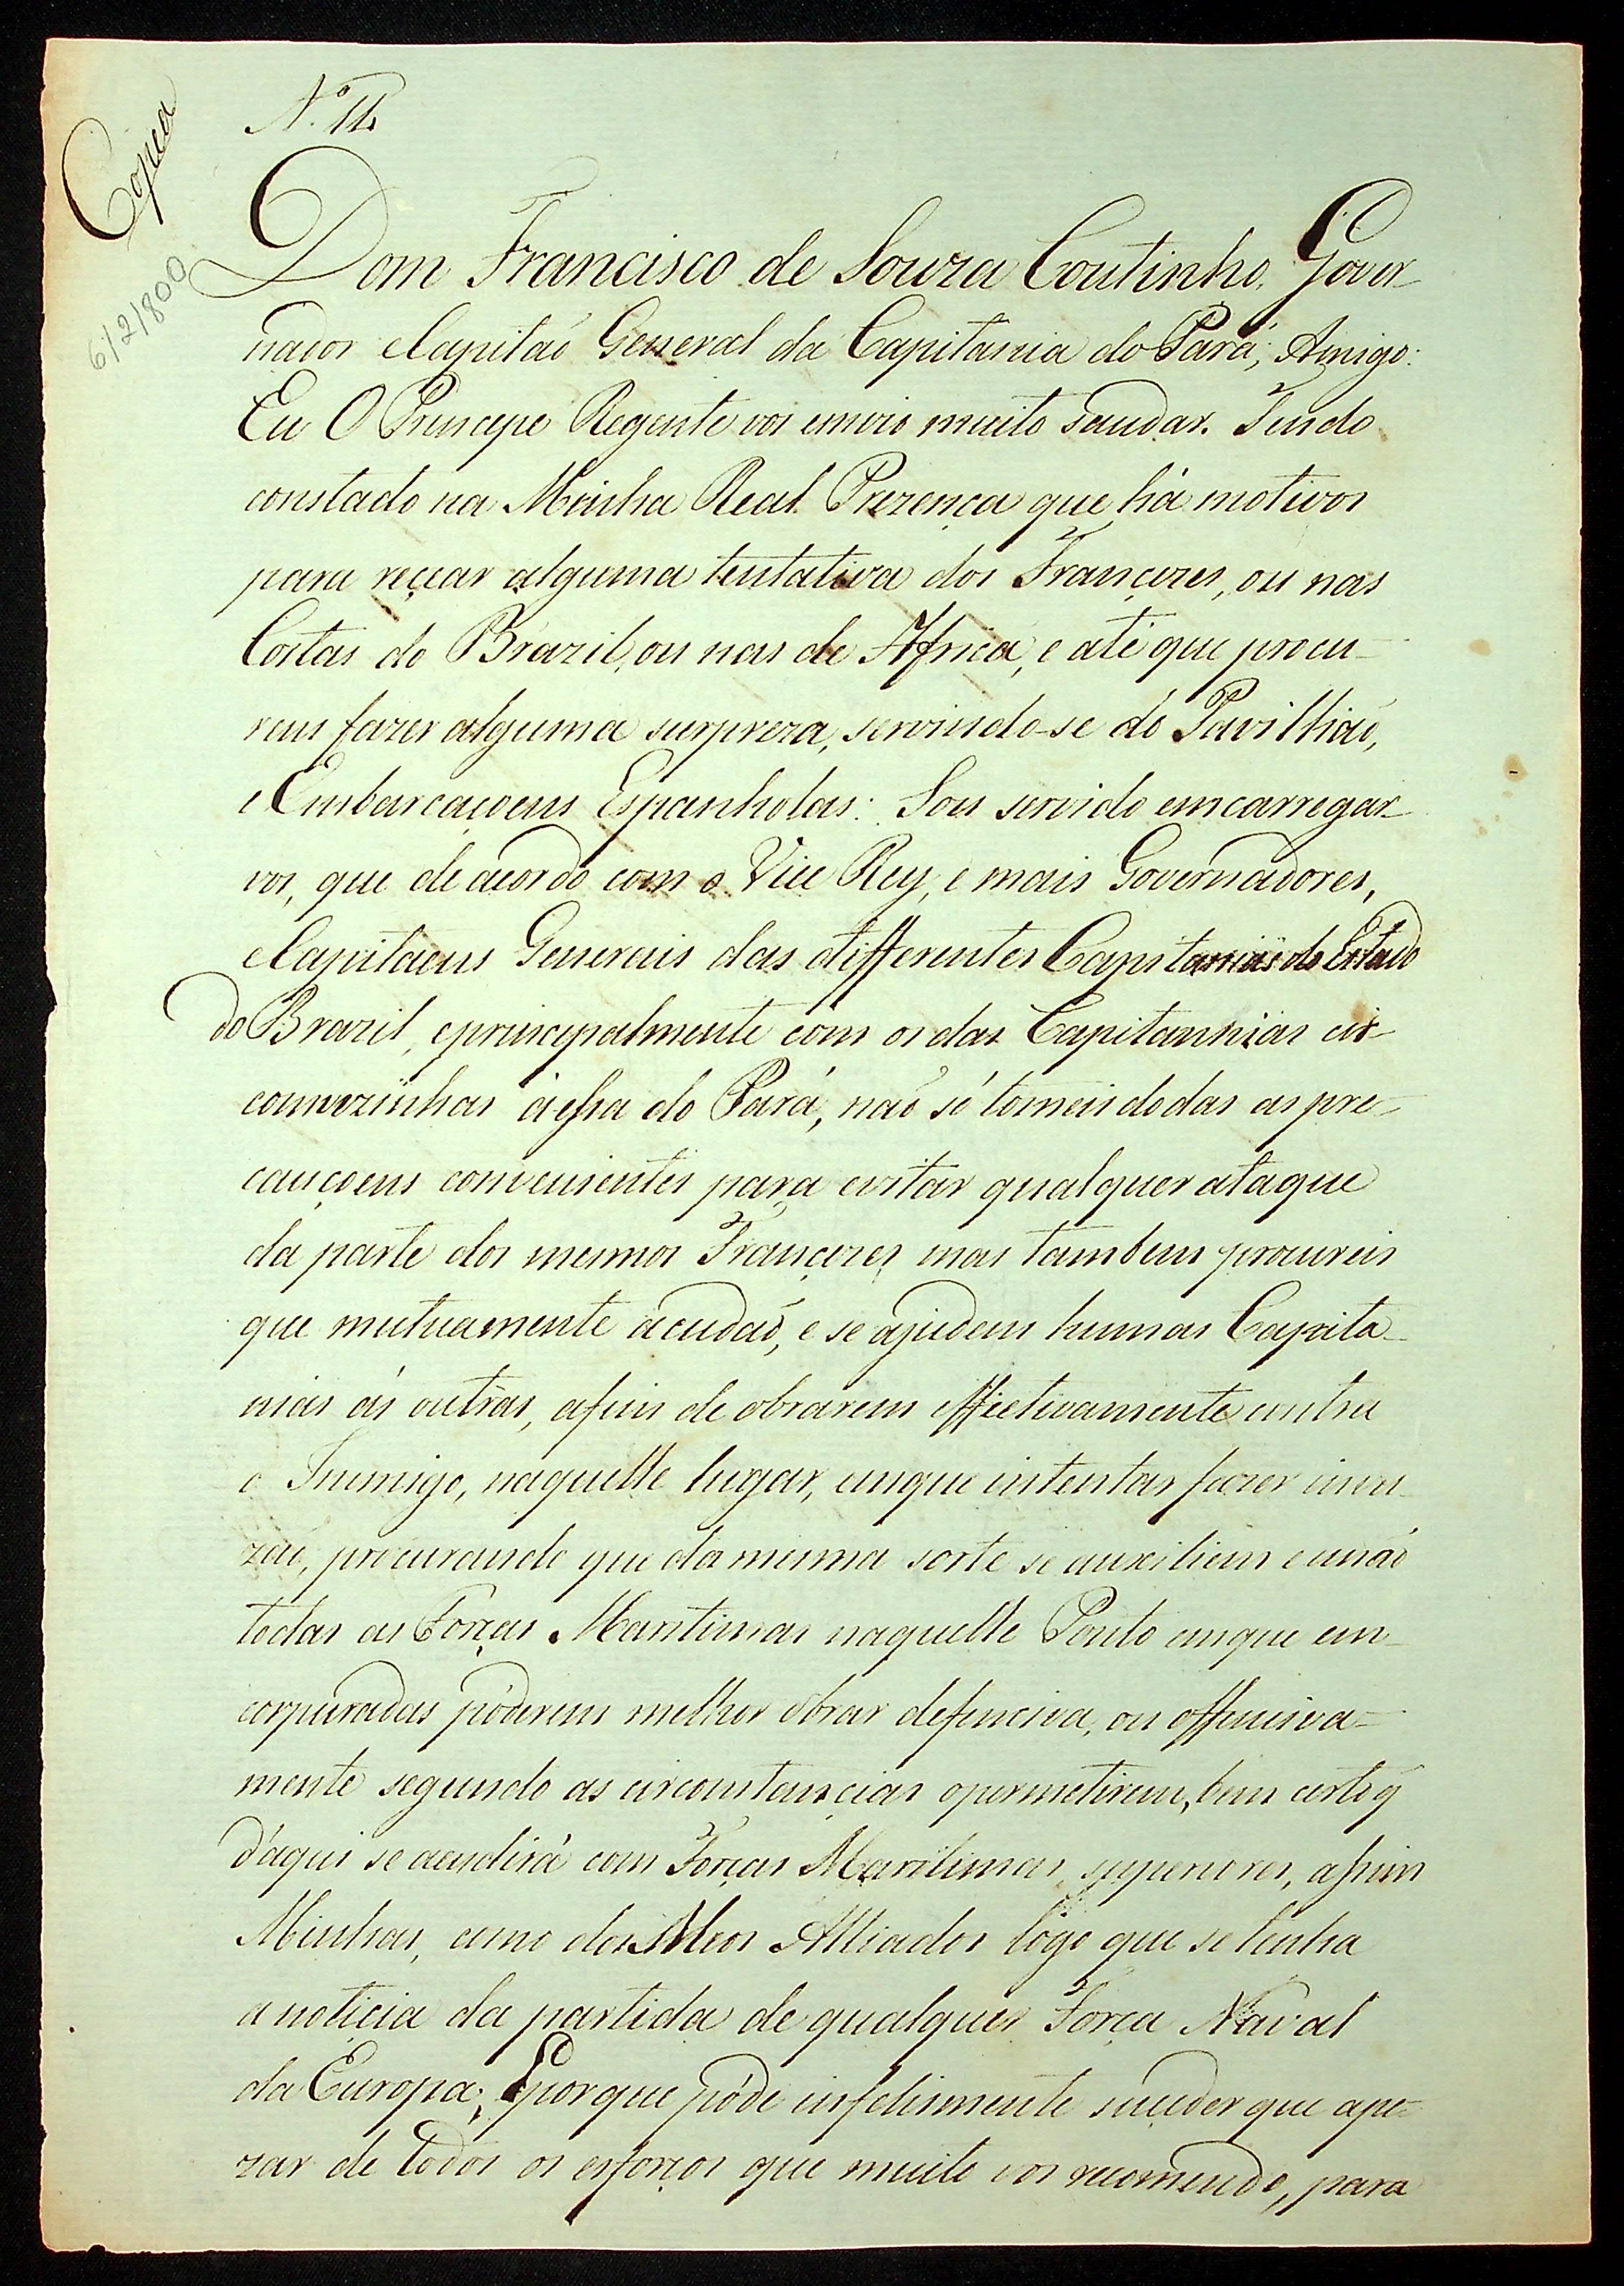 Copia
6/2/1800
N.º 11.
Dom Francisco de Souza Coutinho, Gover-
nador e Capitaõ General da Capitania do Pará; Amigo:
Eu O Principe Regente vos envio muito saudar. Tendo
constado na Minha Real Prezença que há motivos
para reçear alguma tentativa dos Françezes, ou nas
Costas do Brazil, ou nas de Africa, e até que procu-
rem fazer alguma surpreza, servindo-se do Pavilhaõ,
e Embarcaçoens Espanholas: Sou servido emcarregar-
vos, que de acordo com o Vice Rey, e mais Governadores,
e Capitaens Generais das differentes Capitanias do Estado
do Brazil, e principalmente com os das Capitannias cir-
comvezinhas á essa do Pará, naõ só tomeis dodas as pre-
cauçoens convenientes para evitar qualquer ataque
da parte dos mesmos Françezes, mas tambem procureis
que mutuamente acudaõ, e se ajudem humas Capita-
nias ás outras, afim de obrarem effectivamente contra
o Inimigo, naquelle lugar, emque intentar fazer inva-
zaõ, procurando que da mesma sorte se auxiliem e unaõ
todas as Forças Maritimas naquelle Ponto emque en-
corpuradas póderem melhor obrar defenciva, ou offensiva-
mente segundo as circonstançias opermetirem, bem certo q̃
d'aqui se acudirá com Forças Maritimas superiores, assim
Minhas, como dos Meos Alliados logo que se tenha
a noticia da partida de qualquer Força Naval
da Europa; E porque póde infelismente suçeder que ape-
zar de todos os esforços que muito vos recomendo, para